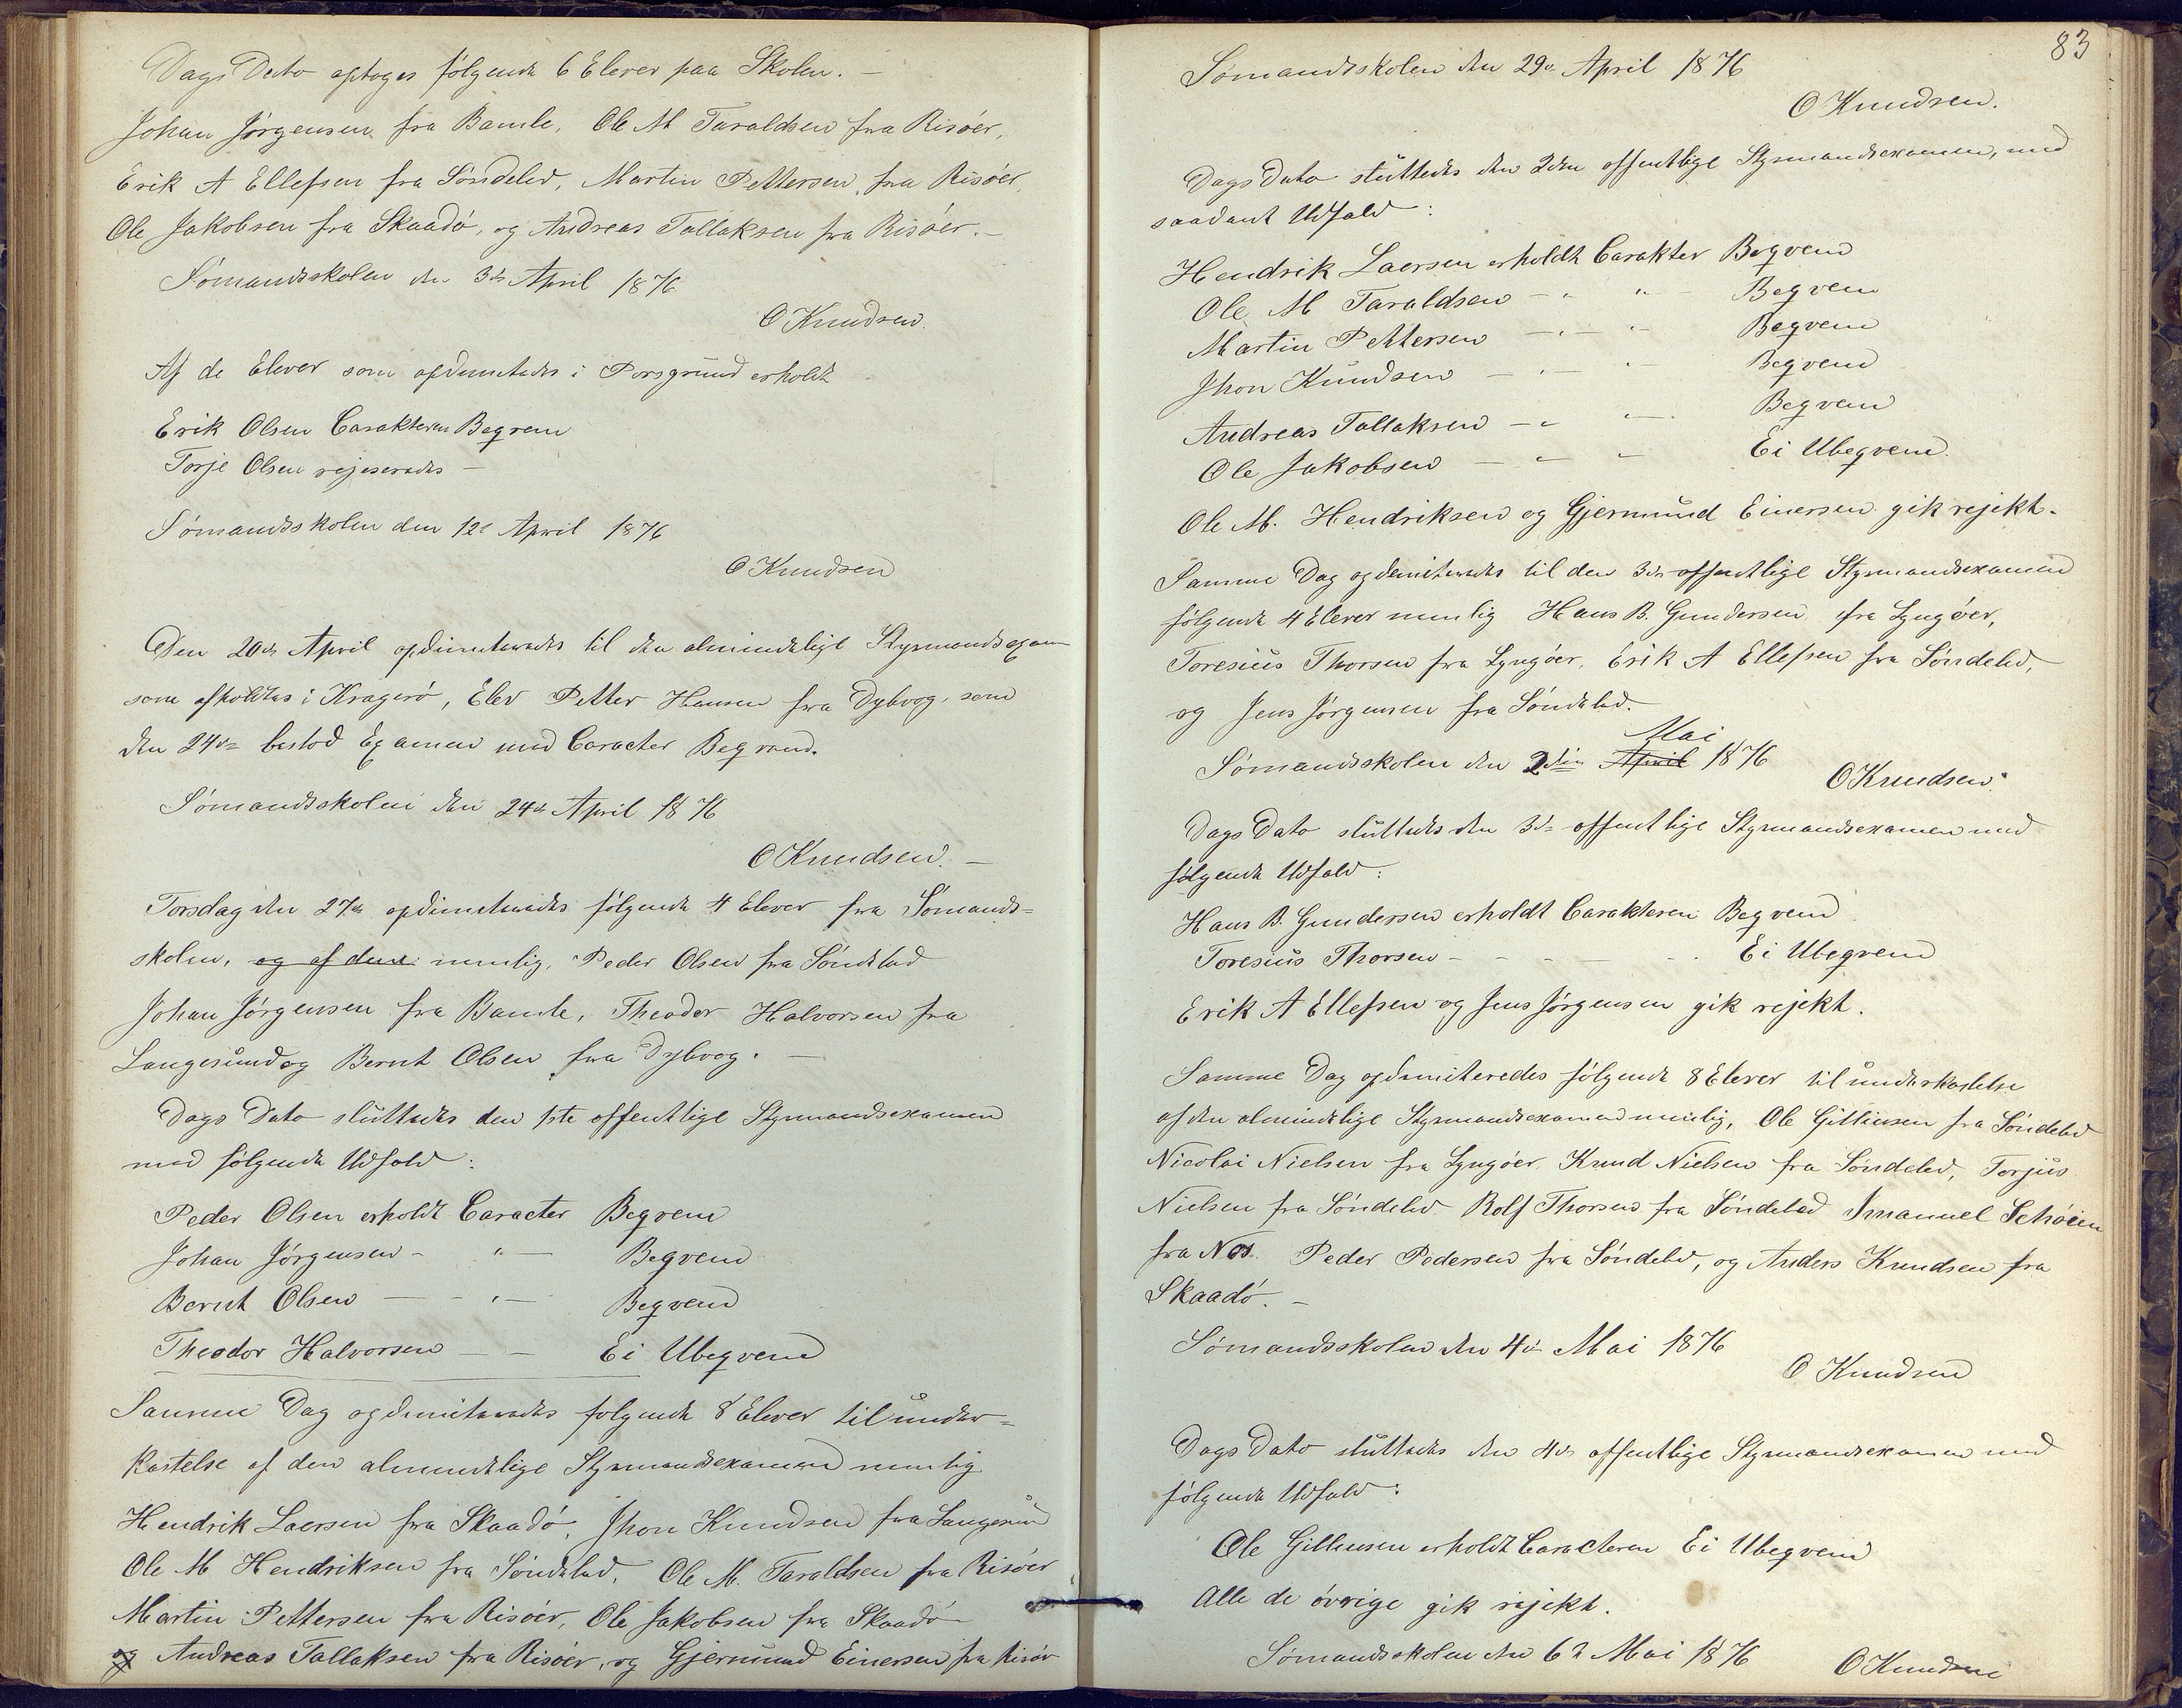 Dags Dato optoges følgende 6 Elever paa Skolen. –
Johan Jørgensen fra Bamle, Ole M Taraldsen fra Risøer,
Erik A Ellefsen fra Søndeled, Martin Pettersen, fra Risøer,
Ole Jakobsen fra Skaadø, og Andreas Tallaksen fra Risøer. –
Sømandsskolen den 3de April 1876
O Knudsen.
Af de Elever som opdimitteredes i Porsgrund erholdt
Erik Olsen Carakteren Beqvem
Torje Olsen rejeseredes –
Sømandsskolen den 12te April 1876
O Knudsen
Den 20de April opdimiteredes til den almindelige Styrmandsexam
som afholdtes i Kragerø, Elev Petter Hansen fra Dybvog, som
den 24de bestod Examen med Caracter Beqvem.
Sømandsskolen den 24de April 1876
O Knudsen. –
Torsdag den 27de opdimiteredes følgende 4 Elever fra Sømands=
skolen, og af dem nemlig, Peder Olsen fra Søndeled
Johan Jørgensen fra Bamle, Theodor Halvorsen fra
Langesund og Bernt Olsen fra Dybvog. –
Dags Dato sluttedes den 1ste offentlige Styrmandsexamen
med følgende Udfald:
Peder Olsen erholdt Caracter Beqvem
Johan Jørgensen – " – Beqvem
Bernt Olsen – – " – Beqvem
Theodor Halvorsen – – Ei Ubeqvem
Samme Dag opdimiteredes følgende 8 Elever til under=
kastelse af den almindelige Styrmandsexamen nemlig
Hendrik Laersen fra Skaadø, Jhon Knudsen fra Langesun
Ole M Hendriksen fra Søndeled, Ole M. Taraldsen fra Risøer
Martin Pettersen fra Risøer, Ole Jakobsen fra Skaadø
og Andreas Tallaksen fra Risøer, og Gjermund Einersen fra Risør
83
Sømandsskolen den 29de April 1876
O Knudsen.
Dags Dato sluttedes den 2den offentlige Styrmandsexamen, med
saadant Udfald:
Hendrik Laersen erholdt Carakter Beqvem
Ole M Taraldsen – " " – Beqvem
Martin Pettersen – " – " Beqvem
Jhon Knudsen – " – " Beqvem
Andreas Tallaksen – " " – Beqvem
Ole Jakobsen – " " Ei Ubeqvem
Ole M. Hendriksen og Gjermund Einersen gik rejekt.
Samme Dag opdemiteredes til den 3die offentlige Styrmandsexamen
følgende 4 Elever nemlig Hans B. Gundersen fra Lyngøer,
Toresius Thorsen fra Lyngøer, Erik A Ellefsen fra Søndeled,
og Jens Jørgensen fra Søndeled.
Mai
Sømandsskolen den 2den April 1876
O Knudsen.
Dags Dato sluttedes den 3die offentlige Styrmandsexamen med
følgende Udfald:
Hans B. Gundersen erholdt Carakteren Beqvem
Toresius Thorsen – – – – – Ei Ubeqvem
Erik A Ellefsen og Jens Jørgensen gik rejekt.
Samme Dag opdimiteredes følgende 8 Elever til underkastelse
af den almindelige Styrmandsexamen nemlig, Ole Gilliusen fra Søndeled
Nicolai Nielsen fra Lyngøer, Knud Nielsen fra Søndeled, Torjus
Nielsen fra Søndeled Rolf Thorsen fra Søndeled Imanuel Schøien
fra Nes. Peder Pedersen fra Søndeled, og Anders Knudsen fra
Skaadø. –
Sømandsskolen den 4de Mai 1876
O Knudsen
Dags Dato sluttedes den 4de offentlige Styrmandsexamen med
følgende Udfald:
Ole Gilleusen erholdt Caracteren Ei Ubeqvem
Alle de øvrige gik rejekt.
Sømandsskolen den 6te Mai 1876
O Knudsen